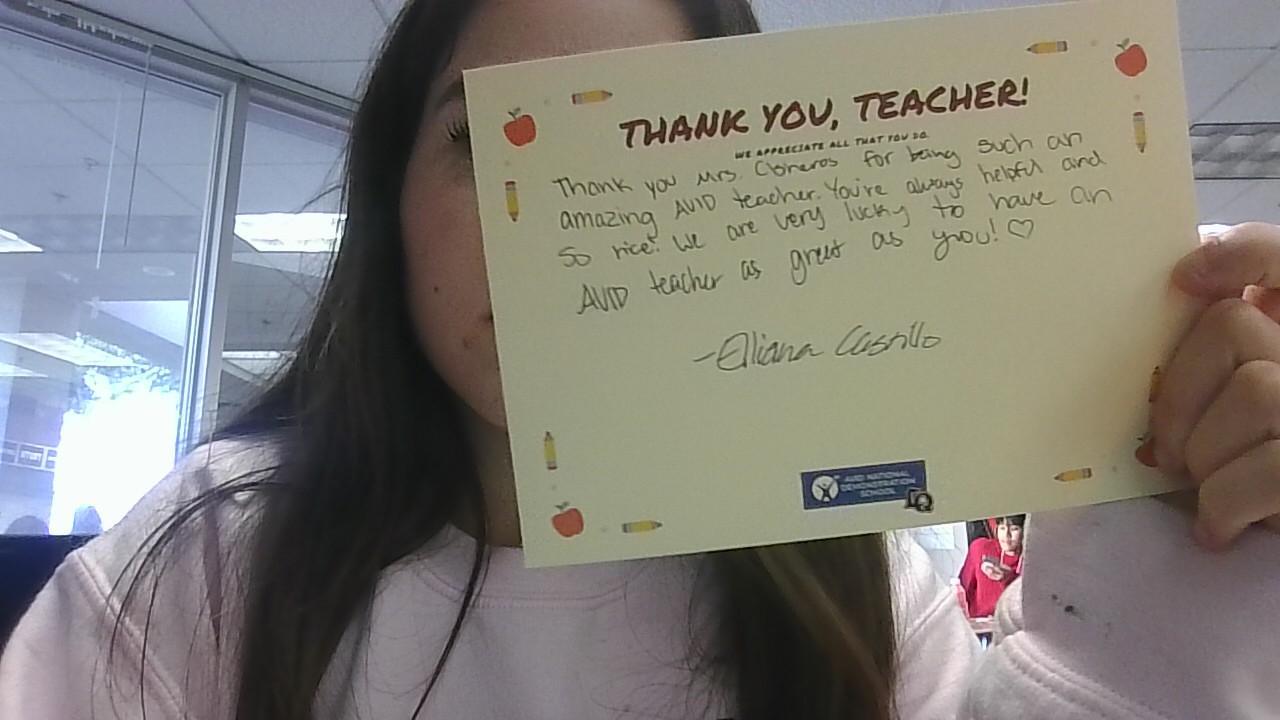 THANK YOU, TEACHER!
WE APPRECIATE ALL THAT YOU DO.
Thank you Mrs. Cisneros for being such an
amazing AVID teacher. You're always helpful and
so nice! We are very lucky to have an
AVID teacher as great as you! ♡
-Eliana Castillo
AVID NATIONAL
DEMONSTRATION
SCHOOL